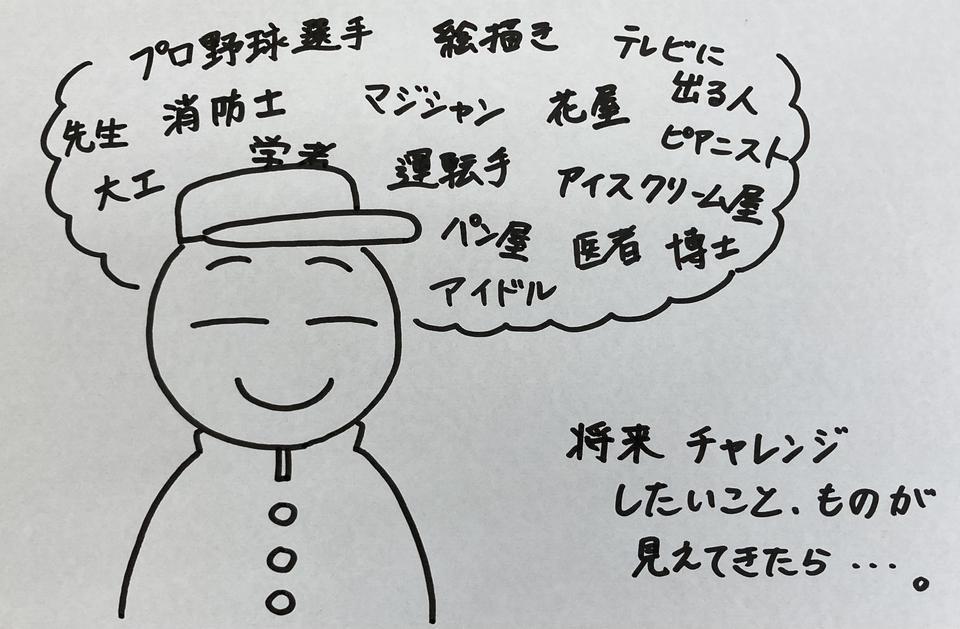 プロ野球選手 絵描き テレビに
出る人
先生 消防士 マジシャン 花屋
ピアニスト
大工 学者 運転手 アイスクリーム屋
パン屋 医者 博士
アイドル
将来 チャレンジ
したいこと、ものが
見えてきたら…。